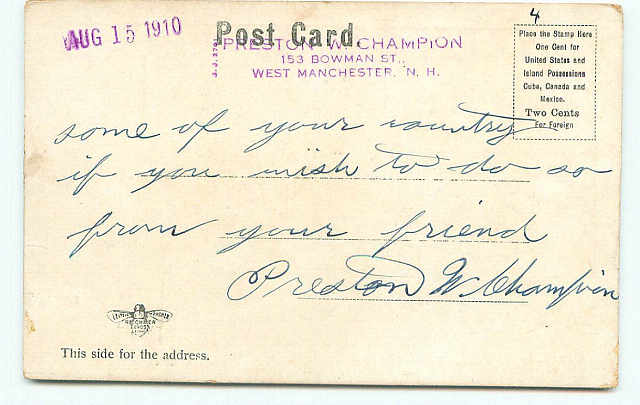 4
AUG 15 1910
Post Card.
PRESTON W. CHAMPION
153 BOWMAN ST.,
WEST MANCHESTER, N. H.
Place the Stamp Here
One Cent for
United States and
Island Possessions
Cuba, Canada and
Mexico.
Two Cents
For Foreign
some of your country
if you wish to do so
from your friend
Preston W. Champion
This side for the address.